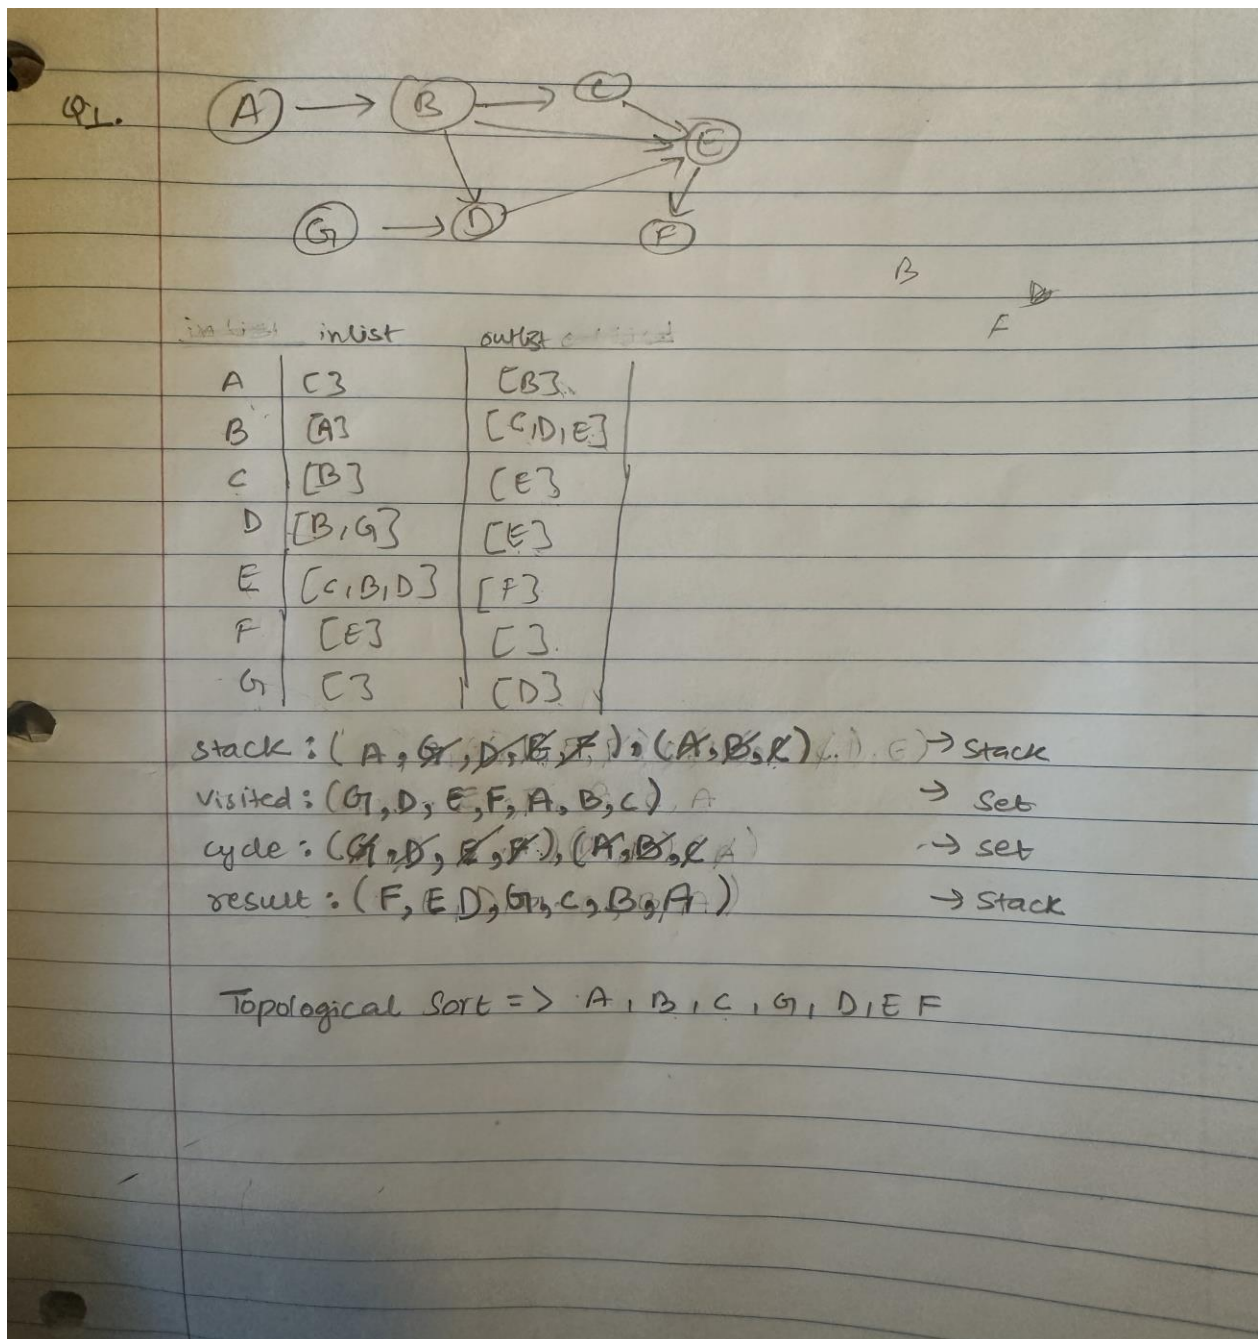 Q1.
A B C
E
G D F
B
F
inlist outlist
A [] [B]
B [A] [C,D,E]
C [B] [E]
D [B,G] [E]
E [C,B,D] [F]
F [E] []
G [] [D]
stack : (A, G, D, E, F), (A, B, C) → Stack
visited : (G, D, E, F, A, B, C) → Set
cycle : (G, D, E, F), (A, B, C → set
result : (F, E D, G, C, B, A) → Stack
Topological Sort => A, B, C, G, D, E F